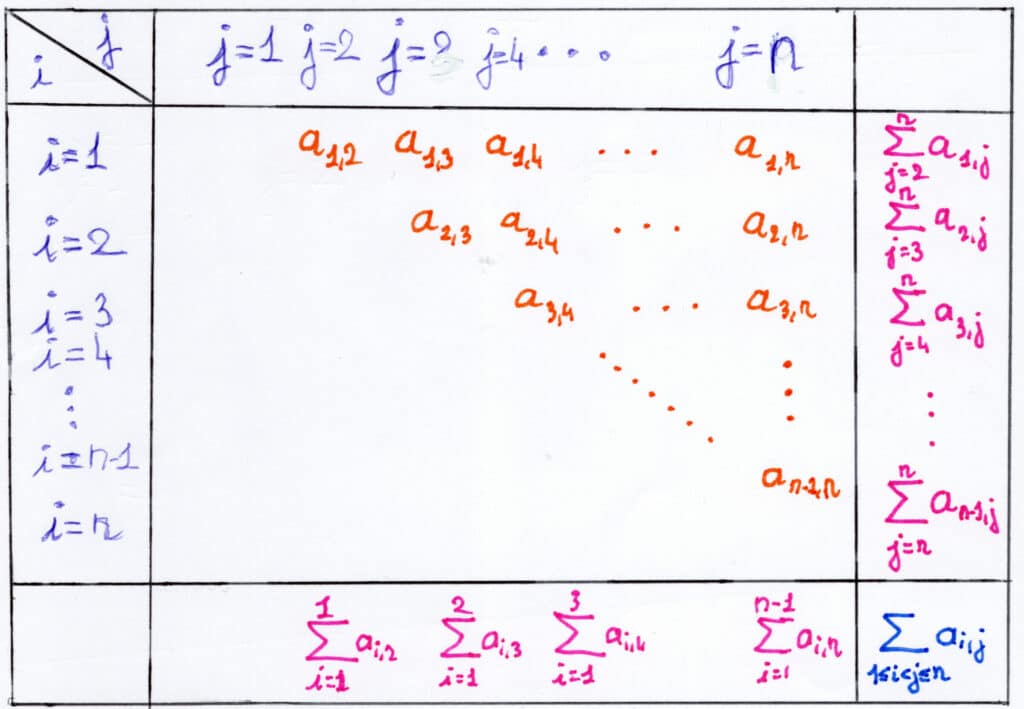 j
i
j=1 j=2 j=3 j=4 ... j=n
i=1 a_{1,2} a_{1,3} a_{1,4} ... a_{1,n} \sum_{j=2}^{n} a_{1,j}
i=2 a_{2,3} a_{2,4} ... a_{2,n} \sum_{j=3}^{n} a_{2,j}
i=3 a_{3,4} ... a_{3,n} \sum_{j=4}^{n} a_{3,j}
i=4
i=n-1 a_{n-1,n} \sum_{j=n}^{n} a_{n-1,j}
i=n
\sum_{i=1}^{1} a_{i,2} \sum_{i=1}^{2} a_{i,3} \sum_{i=1}^{3} a_{i,4} \sum_{i=1}^{n-1} a_{i,n} \sum_{1≤i<j≤n} a_{i,j}